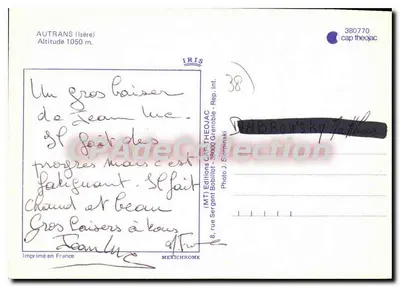 AUTRANS (Isère)
Altitude 1050 m.
380770
cap theojac
IRIS
38
Un gros baiser
de Jean Luc.
Il fait des
progrès mais c'est
fatiguant. Il fait
chaud et beau
Gros baisers à tous
Jean Luc
(MT) Editions CAP THEOJAC
8, rue Sergent Bobillot - 38000 Grenoble - Rép. int.
Imprimé en France
MEXICHROME
AdeCollection